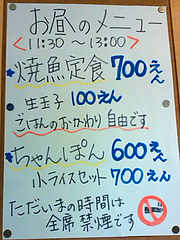 お昼のメニュー
<11:30 ~ 13:00>
★焼魚定食 700えん
生玉子 100えん
ごはんのおかわり 自由です
★ちゃんぽん 600えん
小ライスセット 700えん
ただいまの時間は
全席禁煙です